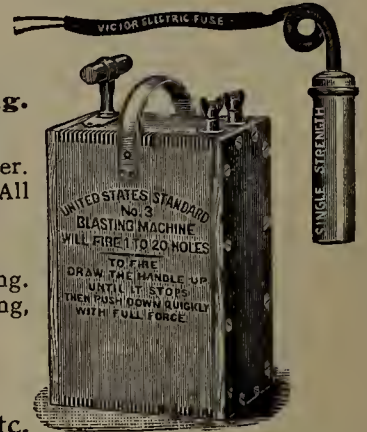 VICTOR ELECTRIC FUSE.
SINGLE STRENGTH
g.
er.
All
UNITED STATES STANDARD
No. 3
BLASTING MACHINE
WILL FIRE 1 TO 20 HOLES
TO FIRE
DRAW THE HANDLE UP
UNTIL IT STOPS
THEN PUSH DOWN QUICKLY
WITH FULL FORCE
ng.
ng,
tc.